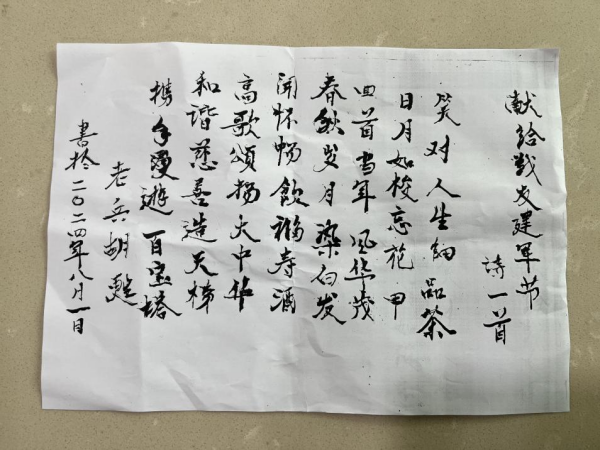 献给战友建军节
诗一首
笑对人生细品茶
日月如梭忘花甲
回首当年风华茂
春秋岁月染白发
開怀畅飲福寿酒
高歌頌揚大中华
和谐慈善造天梯
携手漫遊百宝塔
老兵胡
書於二〇二四年八月一日